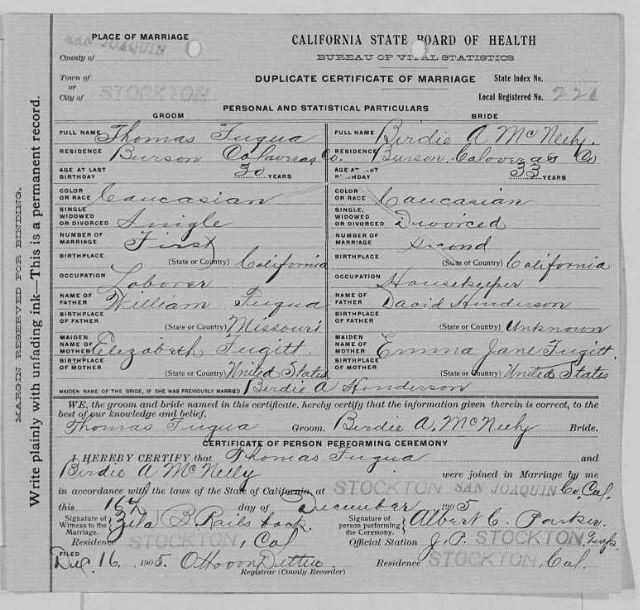 PLACE OF MARRIAGE
County of SAN JOAQUIN
Town of
or
City of STOCKTON
CALIFORNIA STATE BOARD OF HEALTH
BUREAU OF VITAL STATISTICS
DUPLICATE CERTIFICATE OF MARRIAGE
State Index No.
Local Registered No. 221
PERSONAL AND STATISTICAL PARTICULARS
GROOM BRIDE
FULL NAME Thomas Fuqua FULL NAME Birdie A McNeely
RESIDENCE Burson Calaveras Co. RESIDENCE Burson, Calaveras Co
AGE AT LAST BIRTHDAY 30 YEARS AGE AT LAST BIRTHDAY 33 YEARS
COLOR OR RACE Caucasian COLOR OR RACE Caucasian
SINGLE WIDOWED OR DIVORCED Single SINGLE, WIDOWED OR DIVORCED Divorced
NUMBER OF MARRIAGE First NUMBER OF MARRIAGE Second
BIRTHPLACE (State or Country) California BIRTHPLACE (State or Country) California
OCCUPATION Laborer OCCUPATION Housekeeper
NAME OF FATHER William Fuqua NAME OF FATHER David Henderson
BIRTHPLACE OF FATHER (State or Country) Missouri BIRTHPLACE OF FATHER (State or Country) Unknown
MAIDEN NAME OF MOTHER Elezabeth Fugitt MAIDEN NAME OF MOTHER Emma Jane Fugitt
BIRTHPLACE OF MOTHER (State or Country) United States BIRTHPLACE OF MOTHER (State or Country) United States
MAIDEN NAME OF THE BRIDE, IF SHE WAS PREVIOUSLY MARRIED Birdie A Henderson
WE, the groom and bride named in this certificate, hereby certify that the information given therein is correct, to the
best of our knowledge and belief.
Thomas Fuqua Groom. Birdie A. McNeely Bride.
CERTIFICATE OF PERSON PERFORMING CEREMONY
I HEREBY CERTIFY that Thomas Fuqua and
Birdie A McNeely were joined in Marriage by me
in accordance with the laws of the State of California, at STOCKTON SAN JOAQUIN Co, Cal.
this 16th day of December 1905
Signature of Witness to the Marriage. Signature of person performing the Ceremony. Albert C. Parker
Residence STOCKTON, Cal Official Station J.P. STOCKTON,
FILED Dec. 16 1905. Otto von Detten Residence STOCKTON, Cal.
Registrar (County Recorder)
MARGIN RESERVED FOR BINDING.
Write plainly with unfading ink—This is a permanent record.